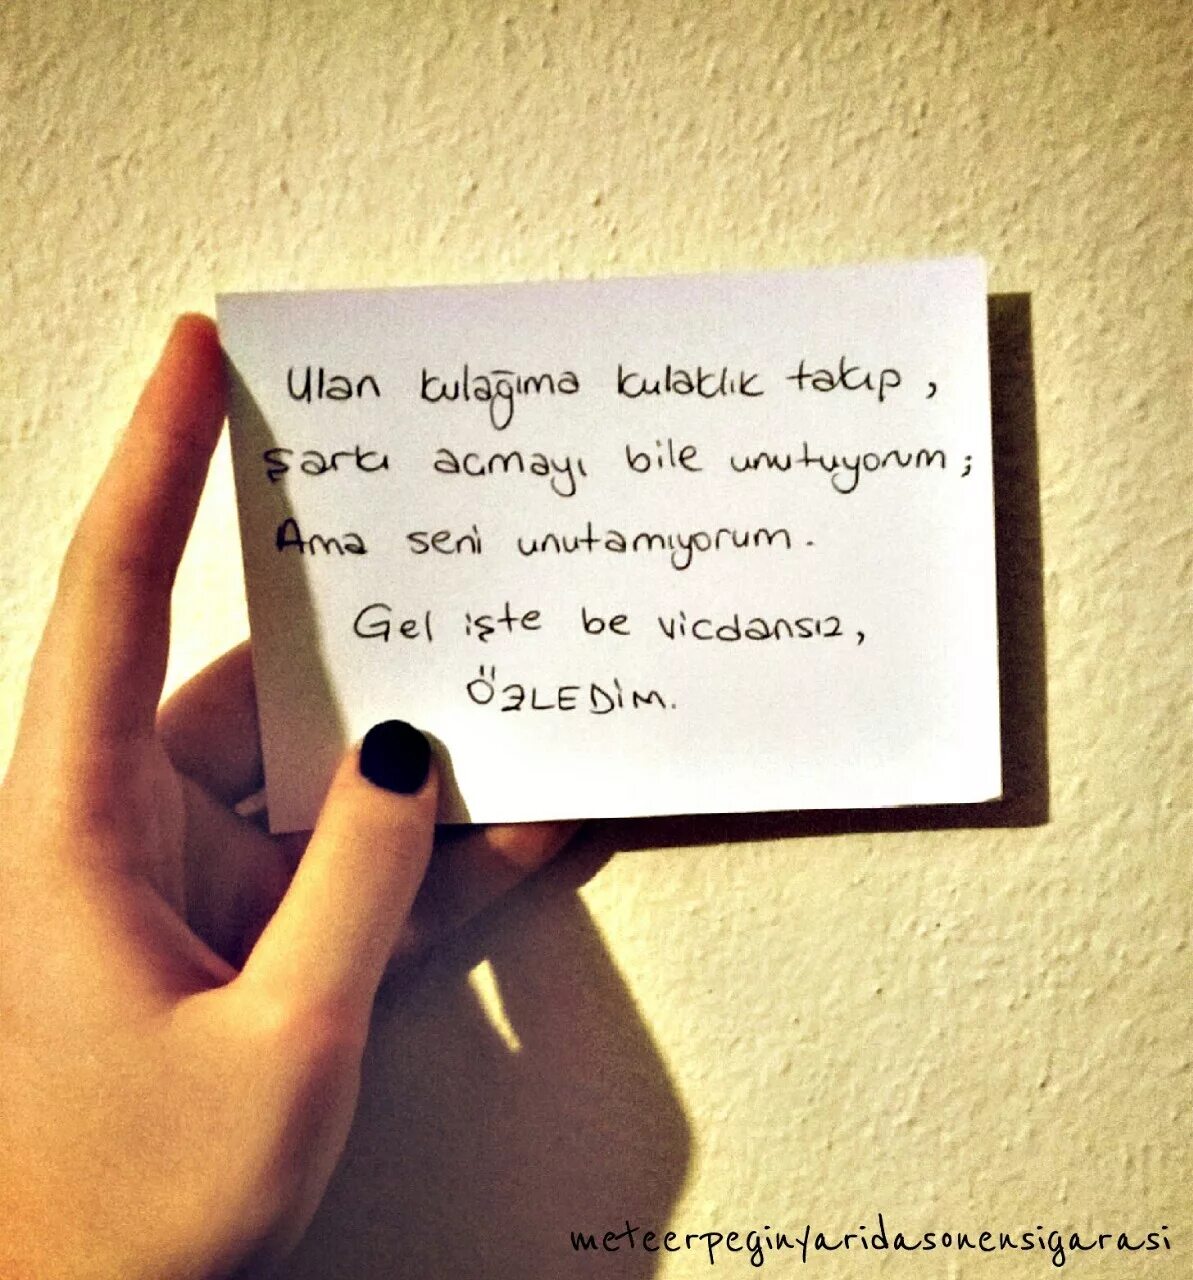 Ulan kulağıma kulaklık takıp,
şarkı açmayı bile unutuyorum;
Ama seni unutamıyorum.
Gel işte be vicdansız,
ÖZLEDİM.
meteerpeginyaridasonensigarasi